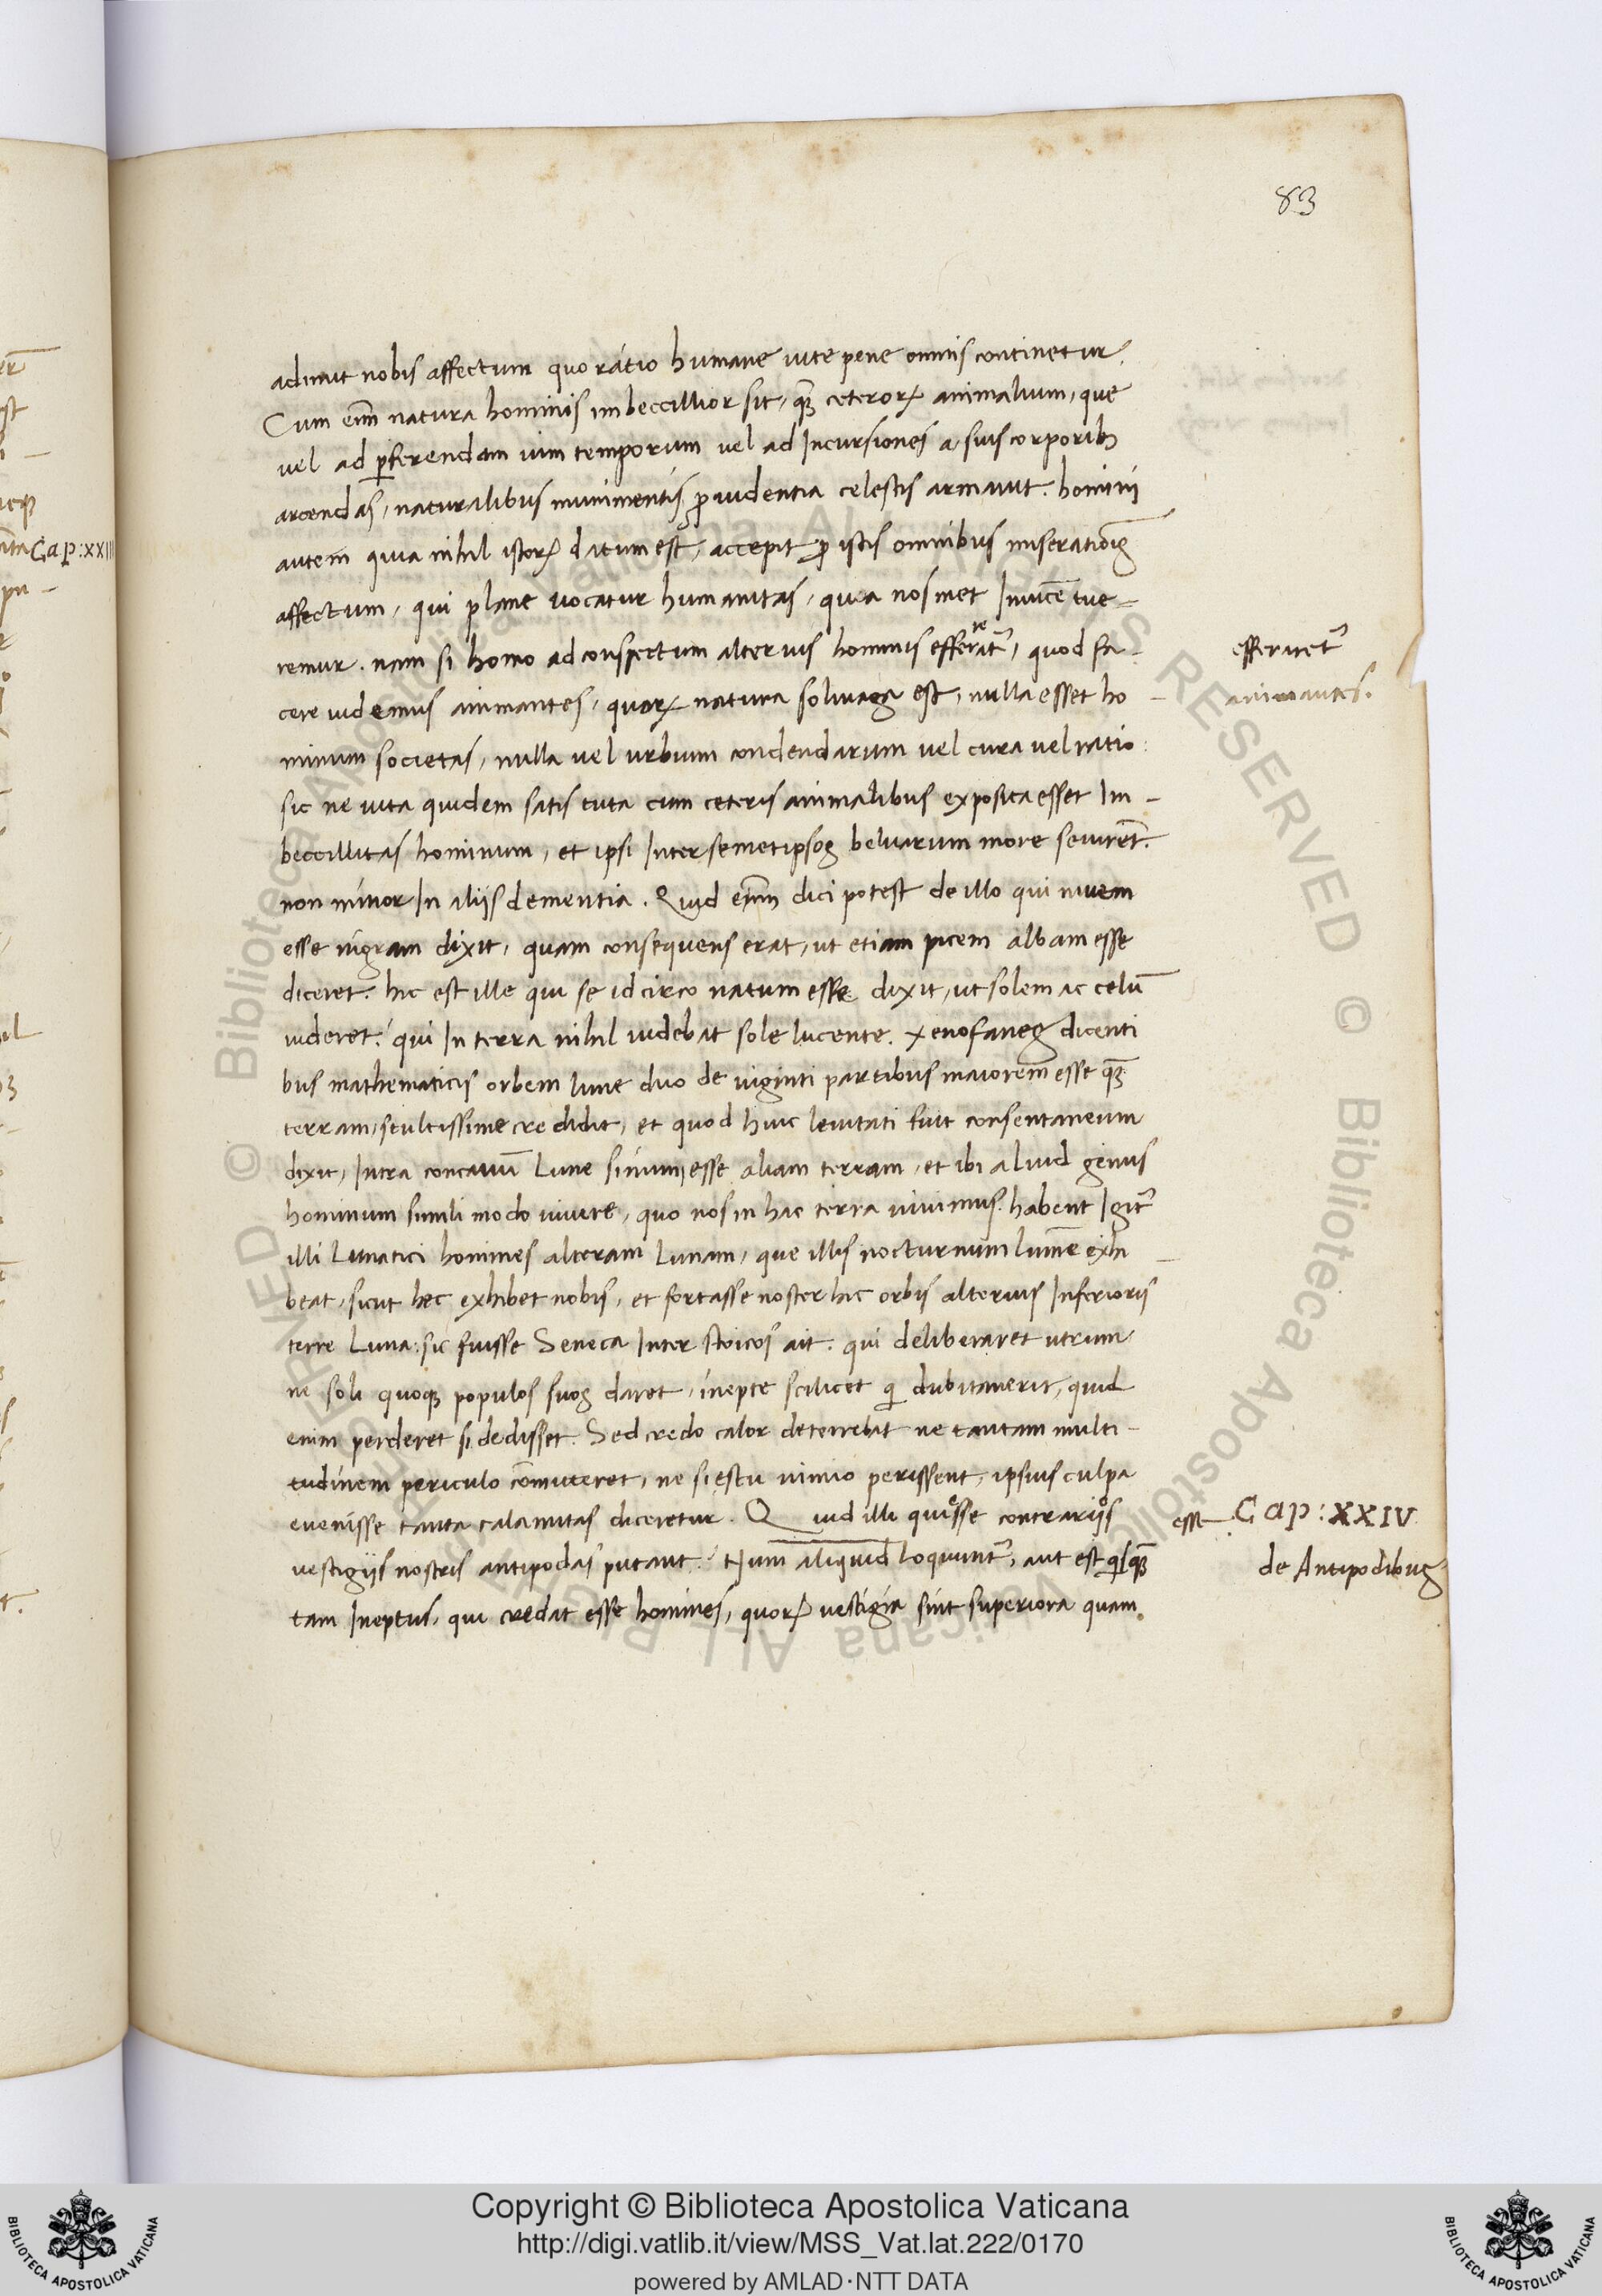 83
adimit nobis affectum quo ratio humane uite pene omnis continetur.
Cum enī natura hominis imbecillior sit, qȝ ceteroꝝ animalium, que
uel ad ꝑferendam uim temporum uel ad Incursiones a suis corporibȝ
arcendas, naturalibus munimentis ꝓuidentia celestis armauit. homini
autem quia nihil istoꝝ datum est, accepit ꝓ istis omnibus miserationis
affectum, qui plane uocatur humanitas, qua nosmet Inuicē tue-
remur. nam si homo ad conspectum alterius hominis efferaret᷑, quod fa-
cere uidemus animantes, quaꝝ natura soliuaga est, nulla esset ho-
minum societas, nulla uel urbium condendarum uel cura uel ratio:
sic ne uita quidem satis tuta cum ceteris animalibus exposita esset Im-
beccillitas hominum, et ipsi Inter semetipsos beluarum more seuirēt.
non minor In aliis dementia. Quid enī dici potest de illo qui niuem
esse nigram dixit, quam consequens erat, ut etiam picem albam esse
diceret. hic est ille qui se idcirco natum esse dixit, ut solem ac celū
uideret. qui In terra nihil uidebat sole lucente. Xenofanes dicenti
bus mathematicis orbem lune duo de uiginti partibus maiorem esse qȝ
terram, stultissime credidit, et quod huic leuitati fuit consentaneum
dixit, Intra concauū Lune sinum esse aliam terram, et ibi aliud genus
hominum simili modo uiuere, quo nos in hac terra uiuimus. habent Igit᷑
illi Lunatici homines alteram Lunam, que illis nocturnum lumē exhi-
beat, sicut hec exhibet nobis, et fortasse noster hic orbis alterius Inferioris
terre Luna: sic fuisse Seneca Inter stoicos ait. qui deliberaret utrum
ne soli quoqꝫ populos suos daret, inepte scilicet qi dubitauerit, quid
enim perderet si dedisset. Sed credo calor deterrebat ne tantam multi-
tudinem periculo cōmitteret, ne si estu nimio perissent, ipsius culpa
euenisse tanta calamitas diceretur. Quid illi qui esse contrarios
uestigiis nostris antipodas putant. Num aliquid Loquunt᷑, aut est qisqȝ
tam Ineptus, qui credat esse homines, quoꝝ uestigia sint superiora quam
efferaret᷑
animantes.
esse Cap: XXIV
de Antipodibus
Cap: XXIII
Copyright © Biblioteca Apostolica Vaticana
http://digi.vatlib.it/view/MSS_Vat.lat.222/0170
powered by AMLAD·NTT DATA